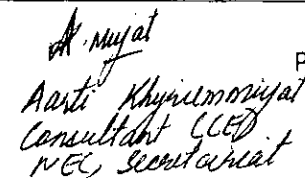 A. Mujat
P
Aarti Khyriemmujat
Consultant (CCED)
NEC, Secretariat